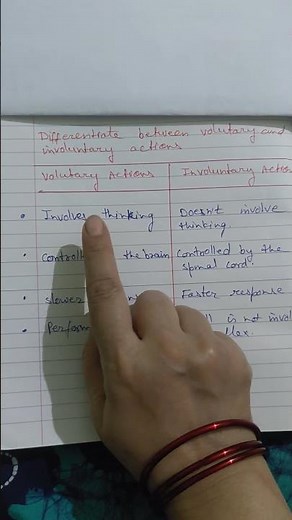 Differentiate between volutary and
involuntary actions
Volutary Actions Involuntary Actio
Involves thinking Doesn't involve
thinking
Controll the brain controlled by the
spinal cord.
slower Faster response
Perform is not invol